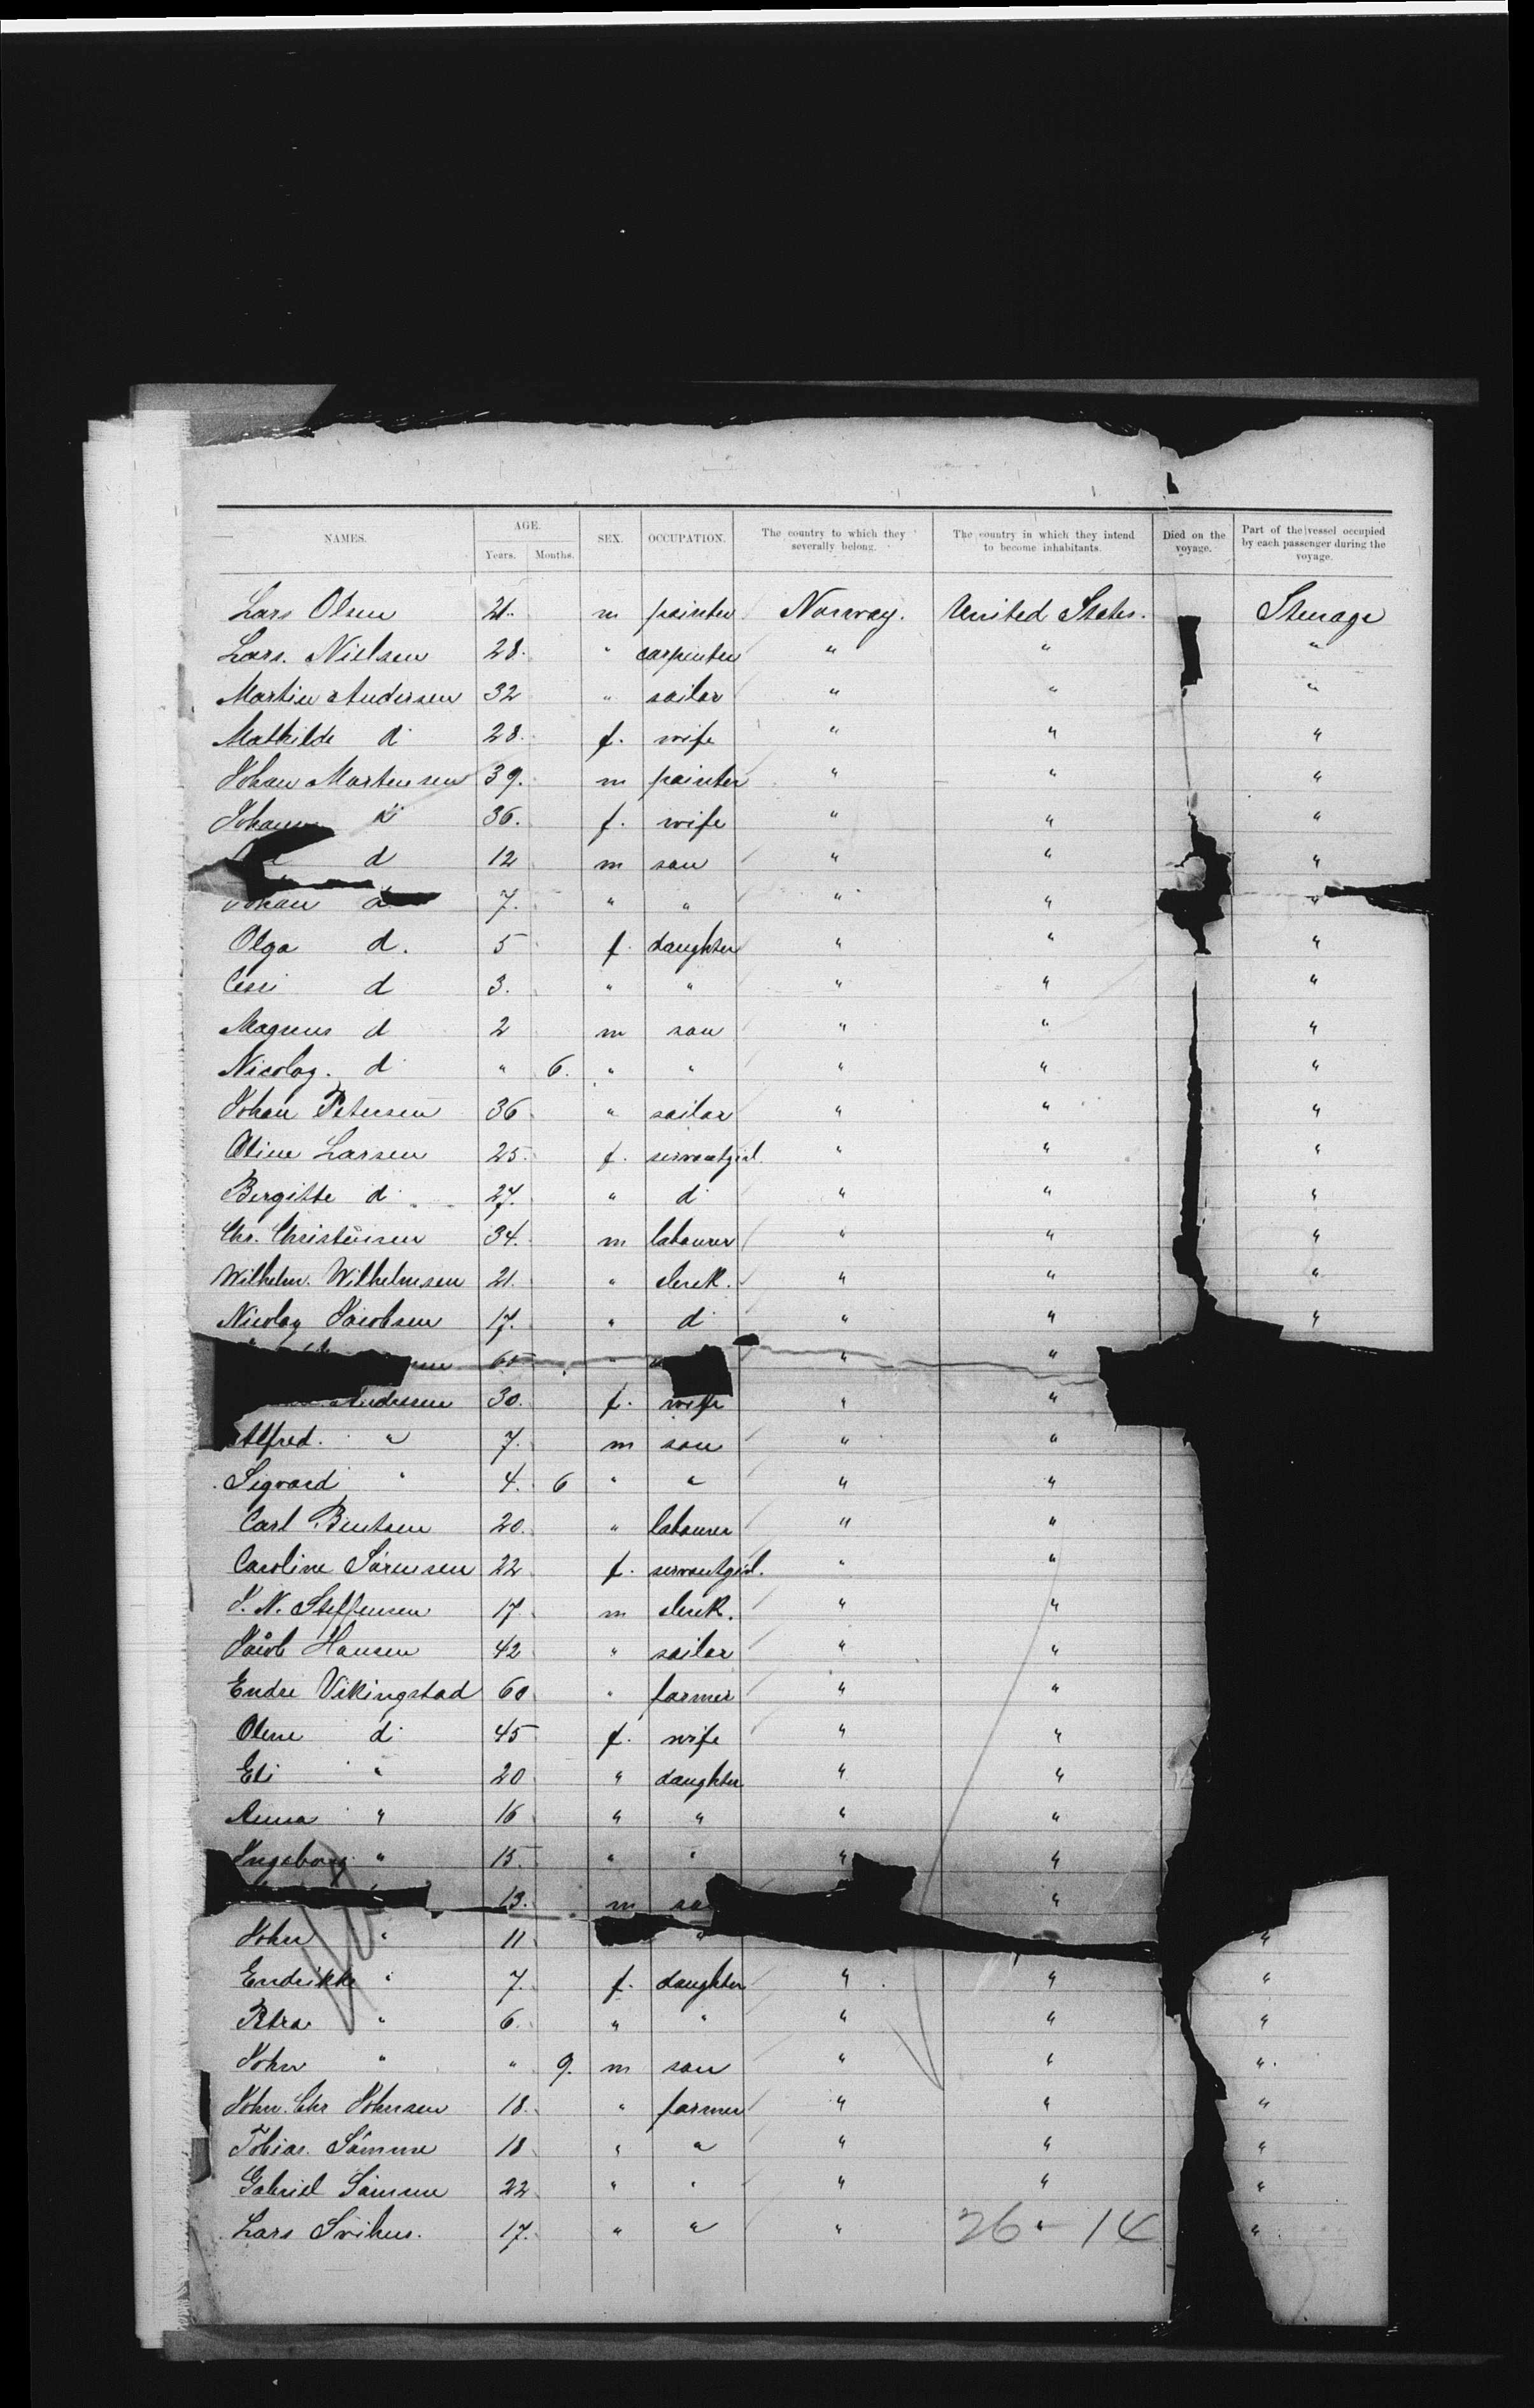 NAMES. AGE. SEX. OCCUPATION. The country to which they severally belong. The country in which they intend to become inhabitants. Died on the voyage. Part of the vessel occupied by each passenger during the voyage.
Years. Months.
Lars Olsen 21. m painter Norway. United States. Steerage
Lars. Nielsen 28. " carpenter " " "
Martin Andersen 32 " sailor " " "
Mathilde d 28. f. wife " " "
Johan Martensen 39. m painter " " "
Johanne d 36. f. wife " " "
d 12 m son " " "
Johan d 7. " " " " "
Olga d. 5 f. daughter " " "
d 3. " " " " "
Magnus d 2 m son " " "
Nicolay. d " 6. " " " " "
Johan Petersen 36 " sailor " " "
Oline Larsen 25. f. servantgirl. " " "
Bergitte d 27. " d " " "
Chr. Christensen 34. m labourer " " "
Wilhelm. Wilhelmsen 21. " clerk. " " "
Nicolay Jacobsen 17. " d " " "
" " "
Andersen 30. f. wife " "
Alfred. " 7. m son " "
Sigvard " 4. 6 " " " "
Carl Bentsen 20. " labourer " "
Caroline Sörensen 22 f. servantgirl. " "
J. N. Steffensen 17. m clerk. " "
Jacob Hansen 42 " sailor " "
Endre Vikingstad 60 " farmer " "
Olene d 45 f. wife " "
Eli " 20 " daughter " "
Anna " 16 " " " "
Ingeborg " 15. " " " "
13. m "
John " 11 " "
Endrikke " 7. f. daughter " " "
Petra " 6. " " " " "
John " " 9. m son " " "
John. Chr Johnsen 18. " farmer " " "
Tobias. Sömme 18 " " " " "
Gabriel Sömme 22 " " " " "
Lars Svihus. 17. " " " " "
26 - 14